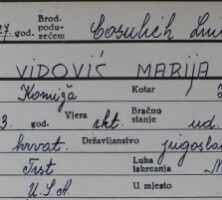 27. god. Brod. podu- rezećem Cosulich Lui
VIDOVIĆ MARIJA
Komiža Kotar
3. god. Vjera rkt. Bračno stanje ud.
hrvat. Državljanstvo jugoslav
Trst Luka iskrcanja
U.S.A U. mjesto